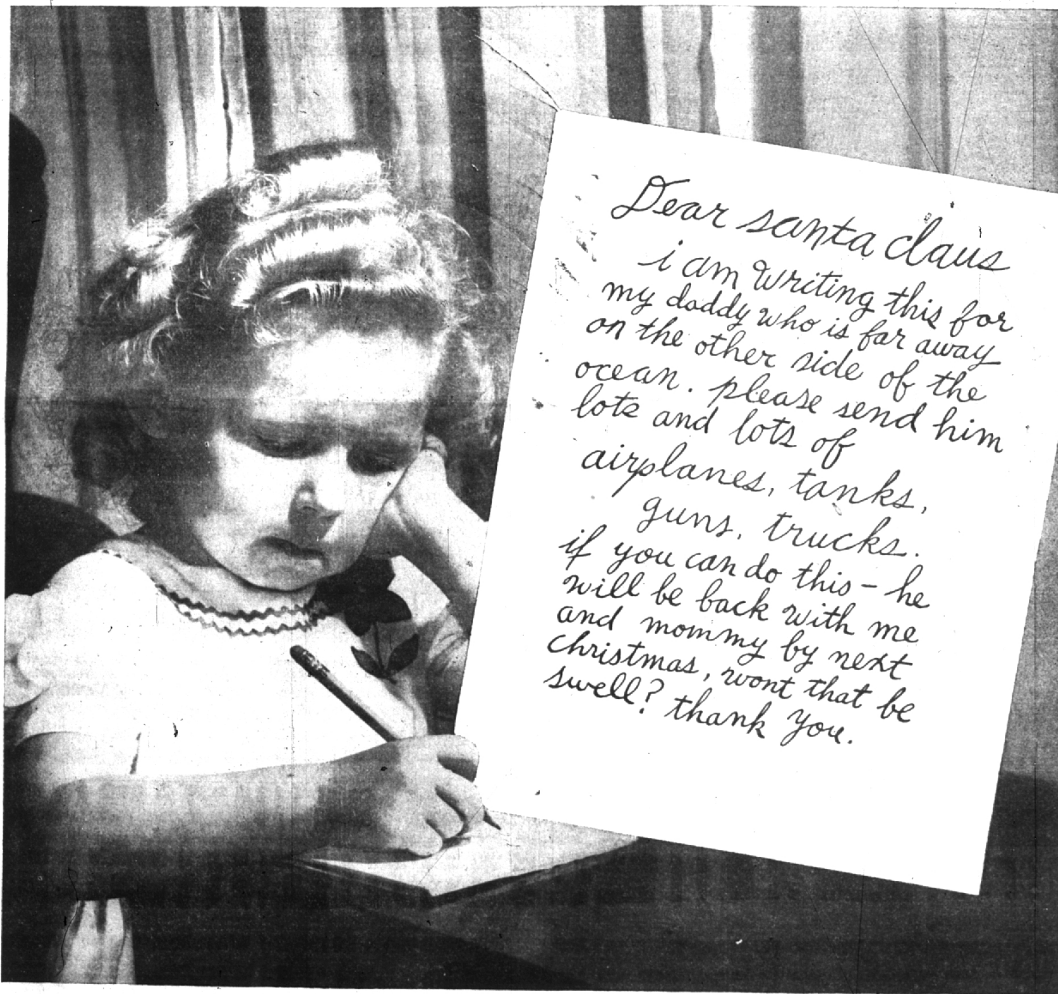 Dear santa claus
i am writing this for
my daddy who is far away
on the other side of the
ocean. please send him
lots and lots of
airplanes, tanks,
guns, trucks.
if you can do this – he
will be back with me
and mommy by next
christmas, wont that be
swell? thank you.